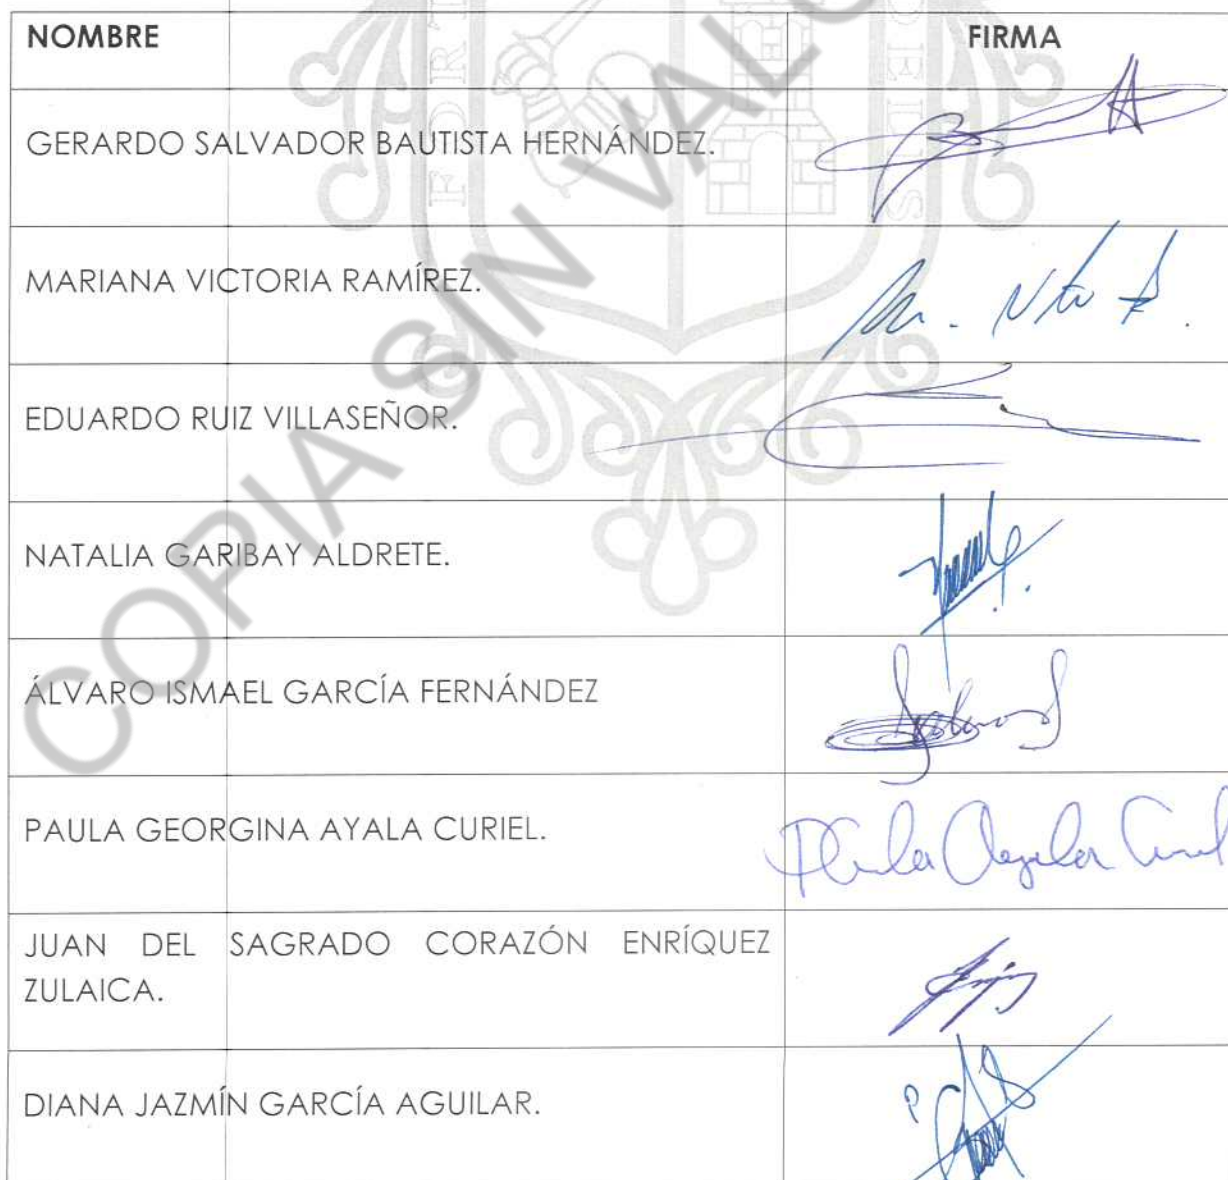 NOMBRE FIRMA
GERARDO SALVADOR BAUTISTA HERNÁNDEZ.
MARIANA VICTORIA RAMÍREZ.
EDUARDO RUIZ VILLASEÑOR.
NATALIA GARIBAY ALDRETE.
ÁLVARO ISMAEL GARCÍA FERNÁNDEZ
PAULA GEORGINA AYALA CURIEL.
JUAN DEL SAGRADO CORAZÓN ENRÍQUEZ
ZULAICA.
DIANA JAZMÍN GARCÍA AGUILAR.
COPIA SIN VALO